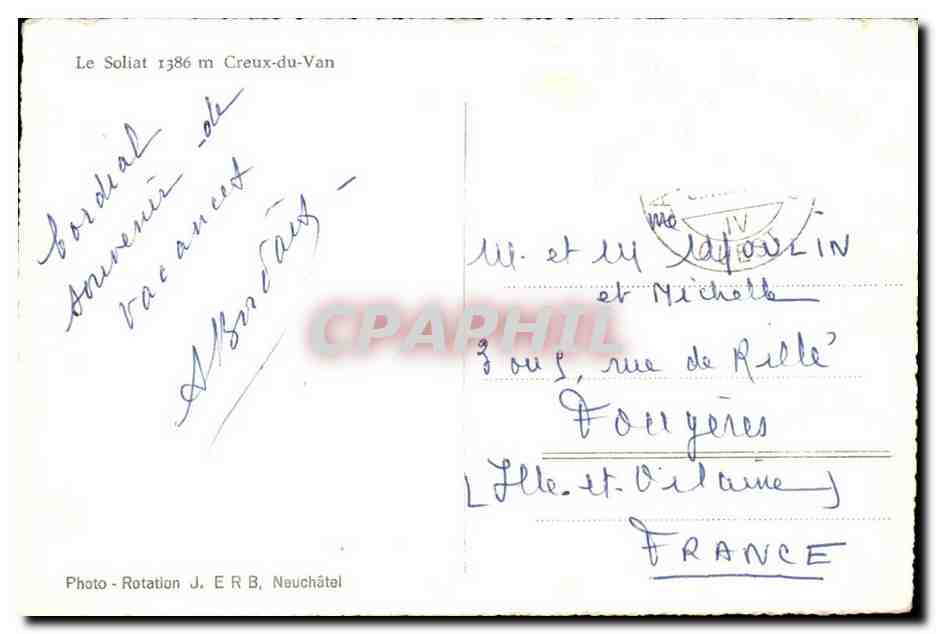 Le Soliat 1386 m Creux-du-Van
Cordial
souvenir de
vacances
IV
M. et Mme MOULIN
et Michelle
3 ou 5, rue de Rillé
Fougères
(Ille-et-Vilaine)
FRANCE
CPAPHIL
Photo - Rotation J. ERB, Neuchâtel